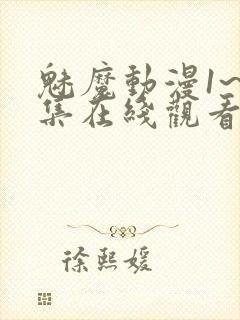 魅魔動漫1~
集在綫觀看
徐熙媛